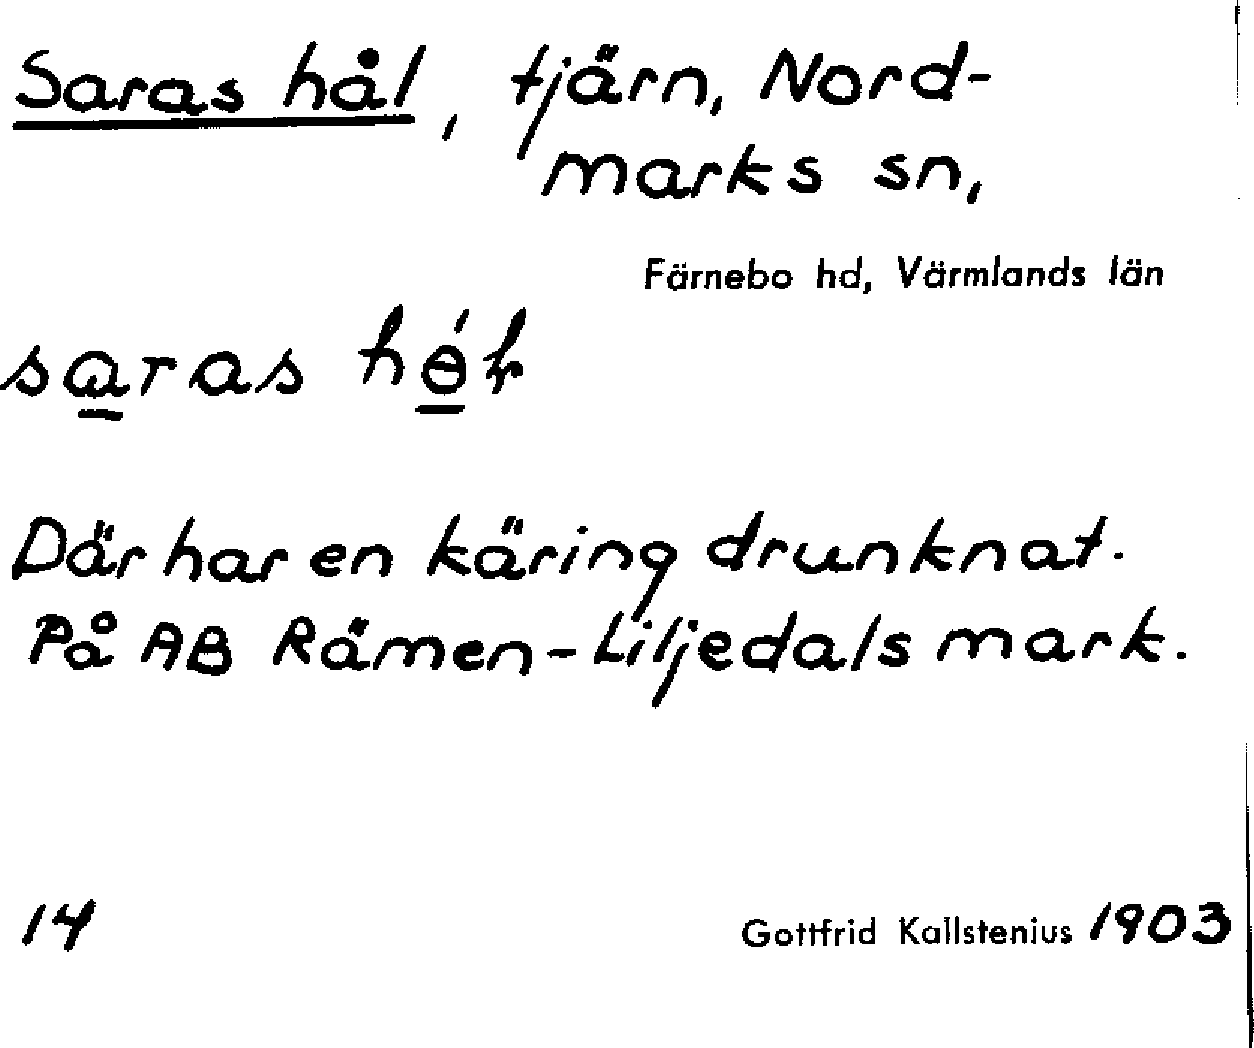 Saras hål, tjärn, Nord-
marks sn,
Färnebo hd, Värmlands län
saras
Där har en käring drunknat.
På AB Rämen-Liljedals mark.
14
Gottfrid Kallstenius 1903